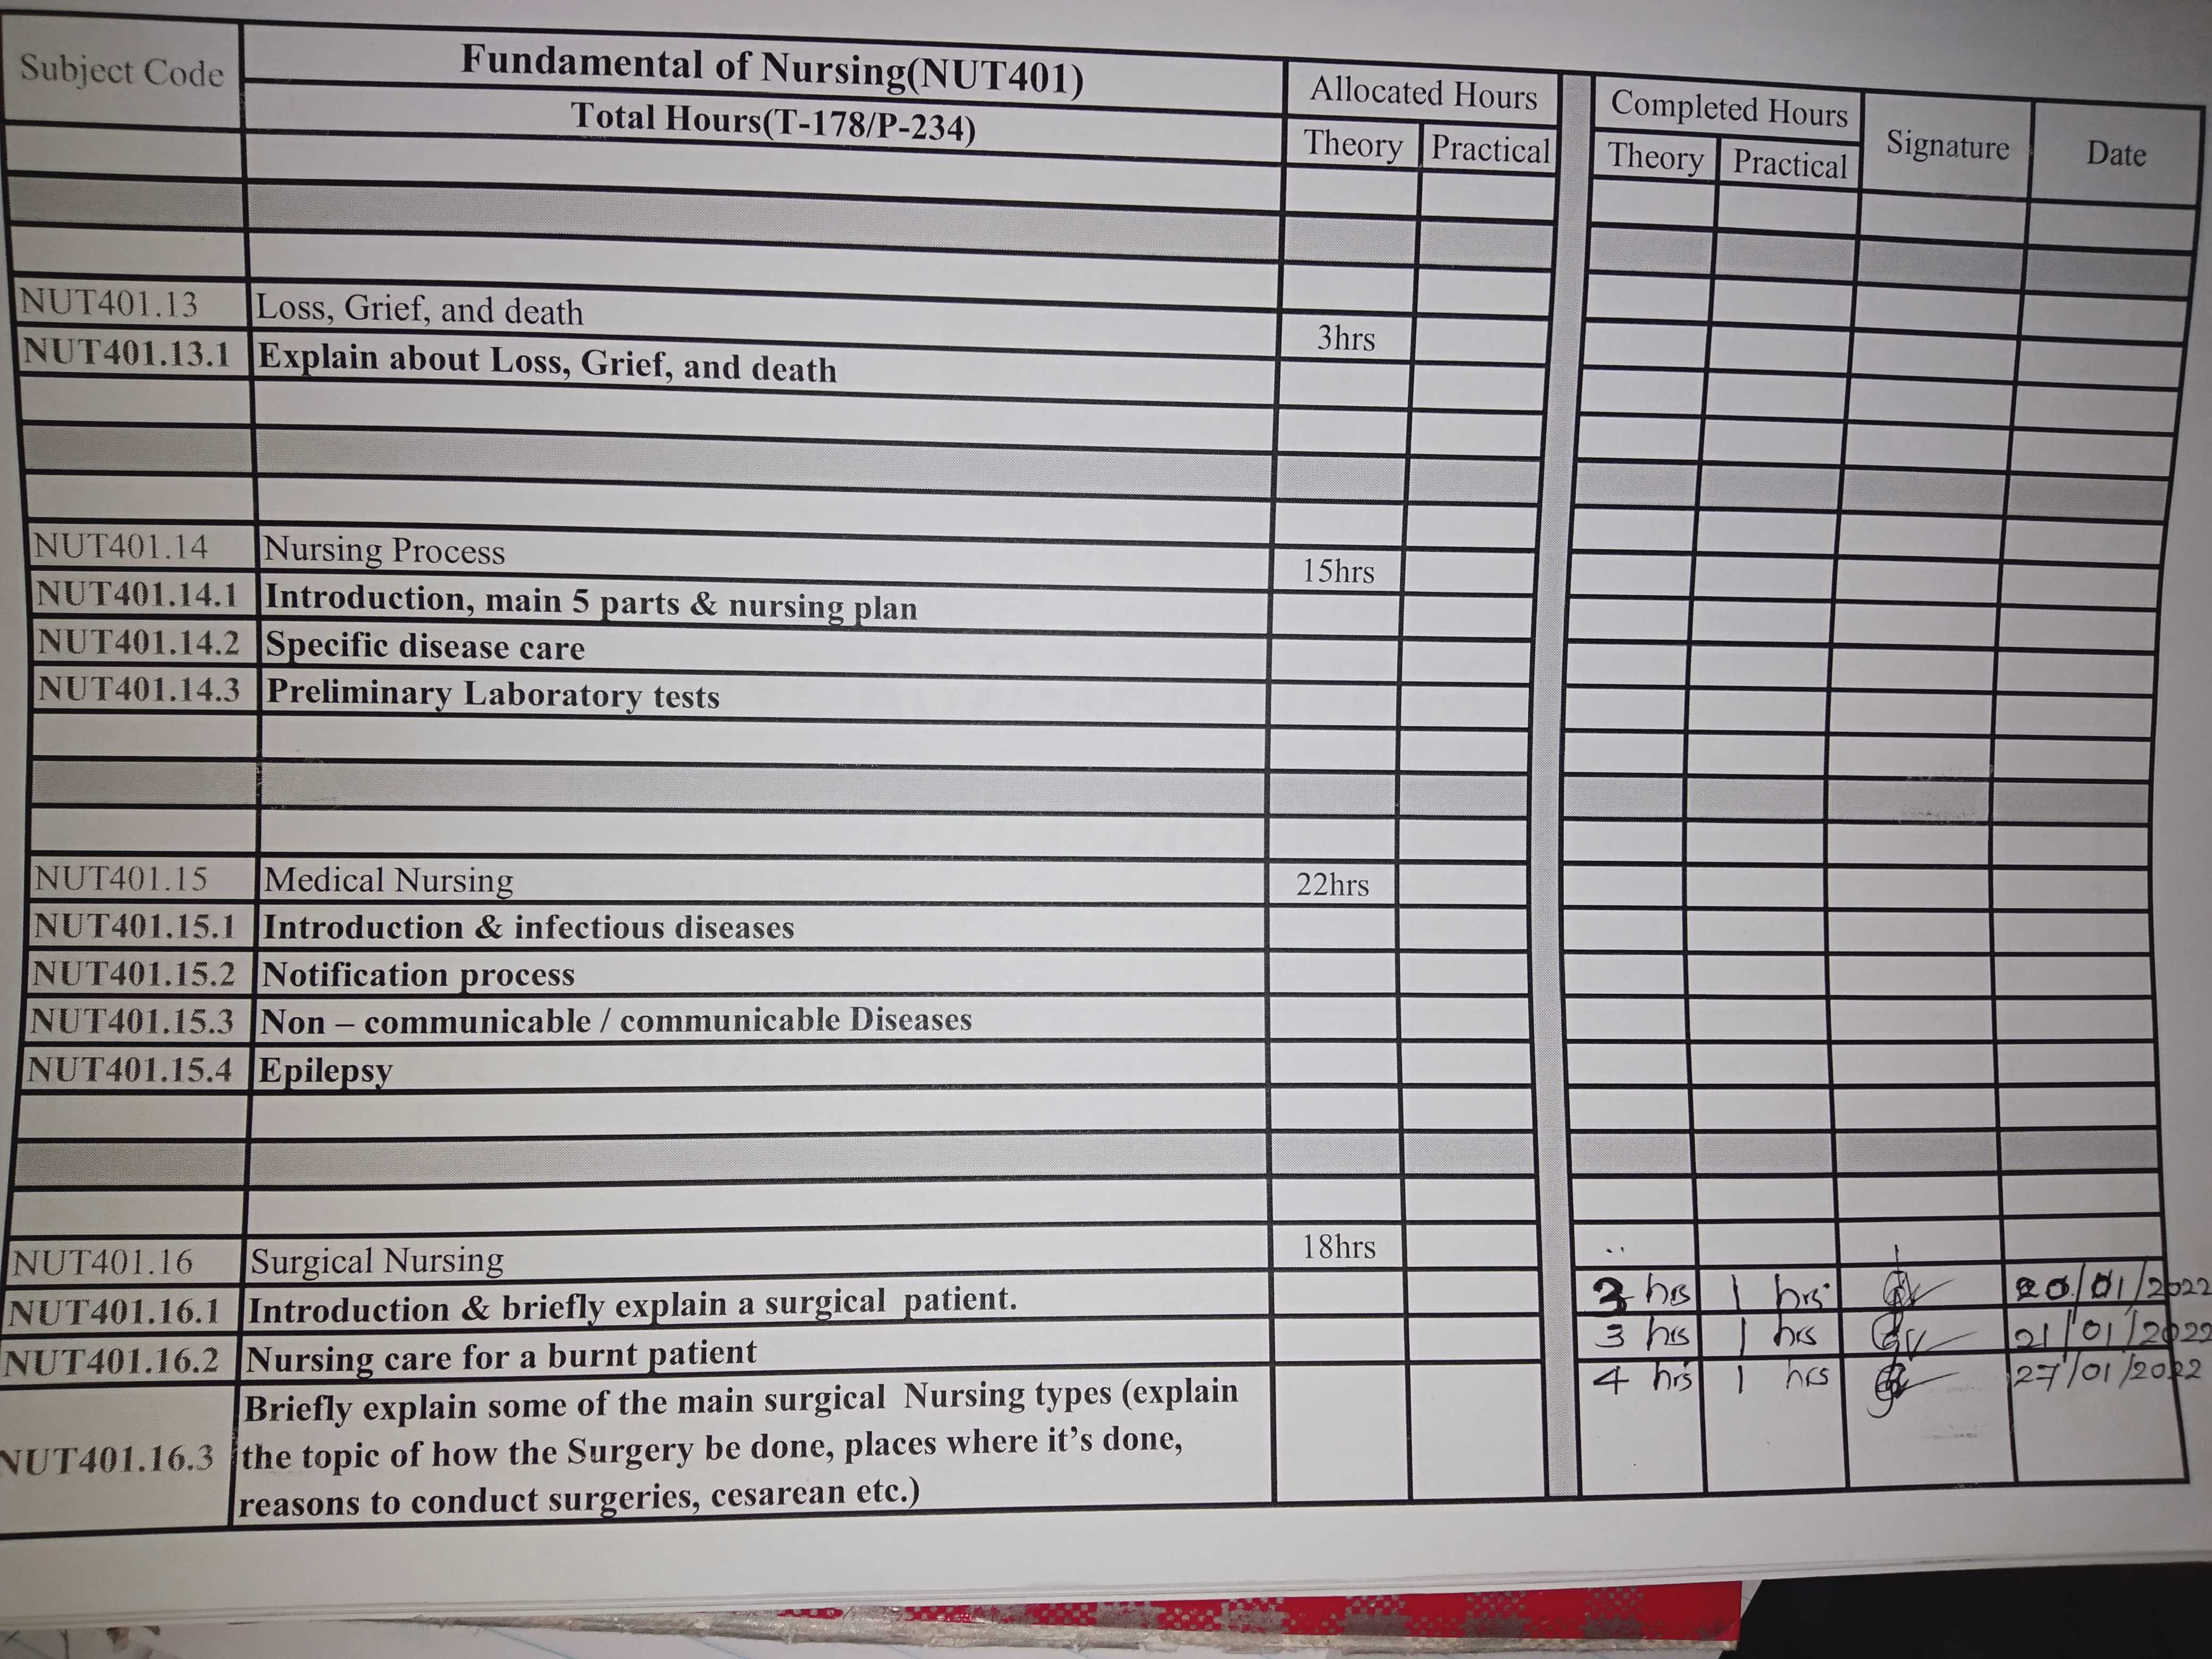 Subject Code
Fundamental of Nursing(NUT401)
Total Hours(T-178/P-234)
Allocated Hours
Theory Practical
Completed Hours
Theory Practical
Signature
Date
NUT401.13 Loss, Grief, and death 3hrs
NUT401.13.1 Explain about Loss, Grief, and death
NUT401.14 Nursing Process 15hrs
NUT401.14.1 Introduction, main 5 parts & nursing plan
NUT401.14.2 Specific disease care
NUT401.14.3 Preliminary Laboratory tests
NUT401.15 Medical Nursing 22hrs
NUT401.15.1 Introduction & infectious diseases
NUT401.15.2 Notification process
NUT401.15.3 Non – communicable / communicable Diseases
NUT401.15.4 Epilepsy
NUT401.16 Surgical Nursing 18hrs
NUT401.16.1 Introduction & briefly explain a surgical patient. 3 hrs 1 hrs 20/01/2022
NUT401.16.2 Nursing care for a burnt patient 3 hrs 1 hrs 21/01/2022
NUT401.16.3 Briefly explain some of the main surgical Nursing types (explain 4 hrs 1 hrs 27/01/2022
the topic of how the Surgery be done, places where it's done,
reasons to conduct surgeries, cesarean etc.)